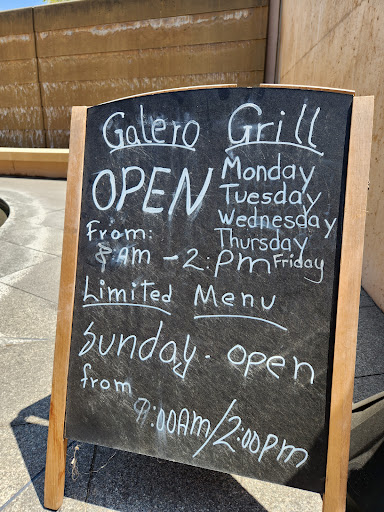 Galero Grill
OPEN Monday
Tuesday
Wednesday
Thursday
Friday
From:
8:AM - 2:pm
Limited Menu
Sunday. open
from
9:00AM/2:00pm